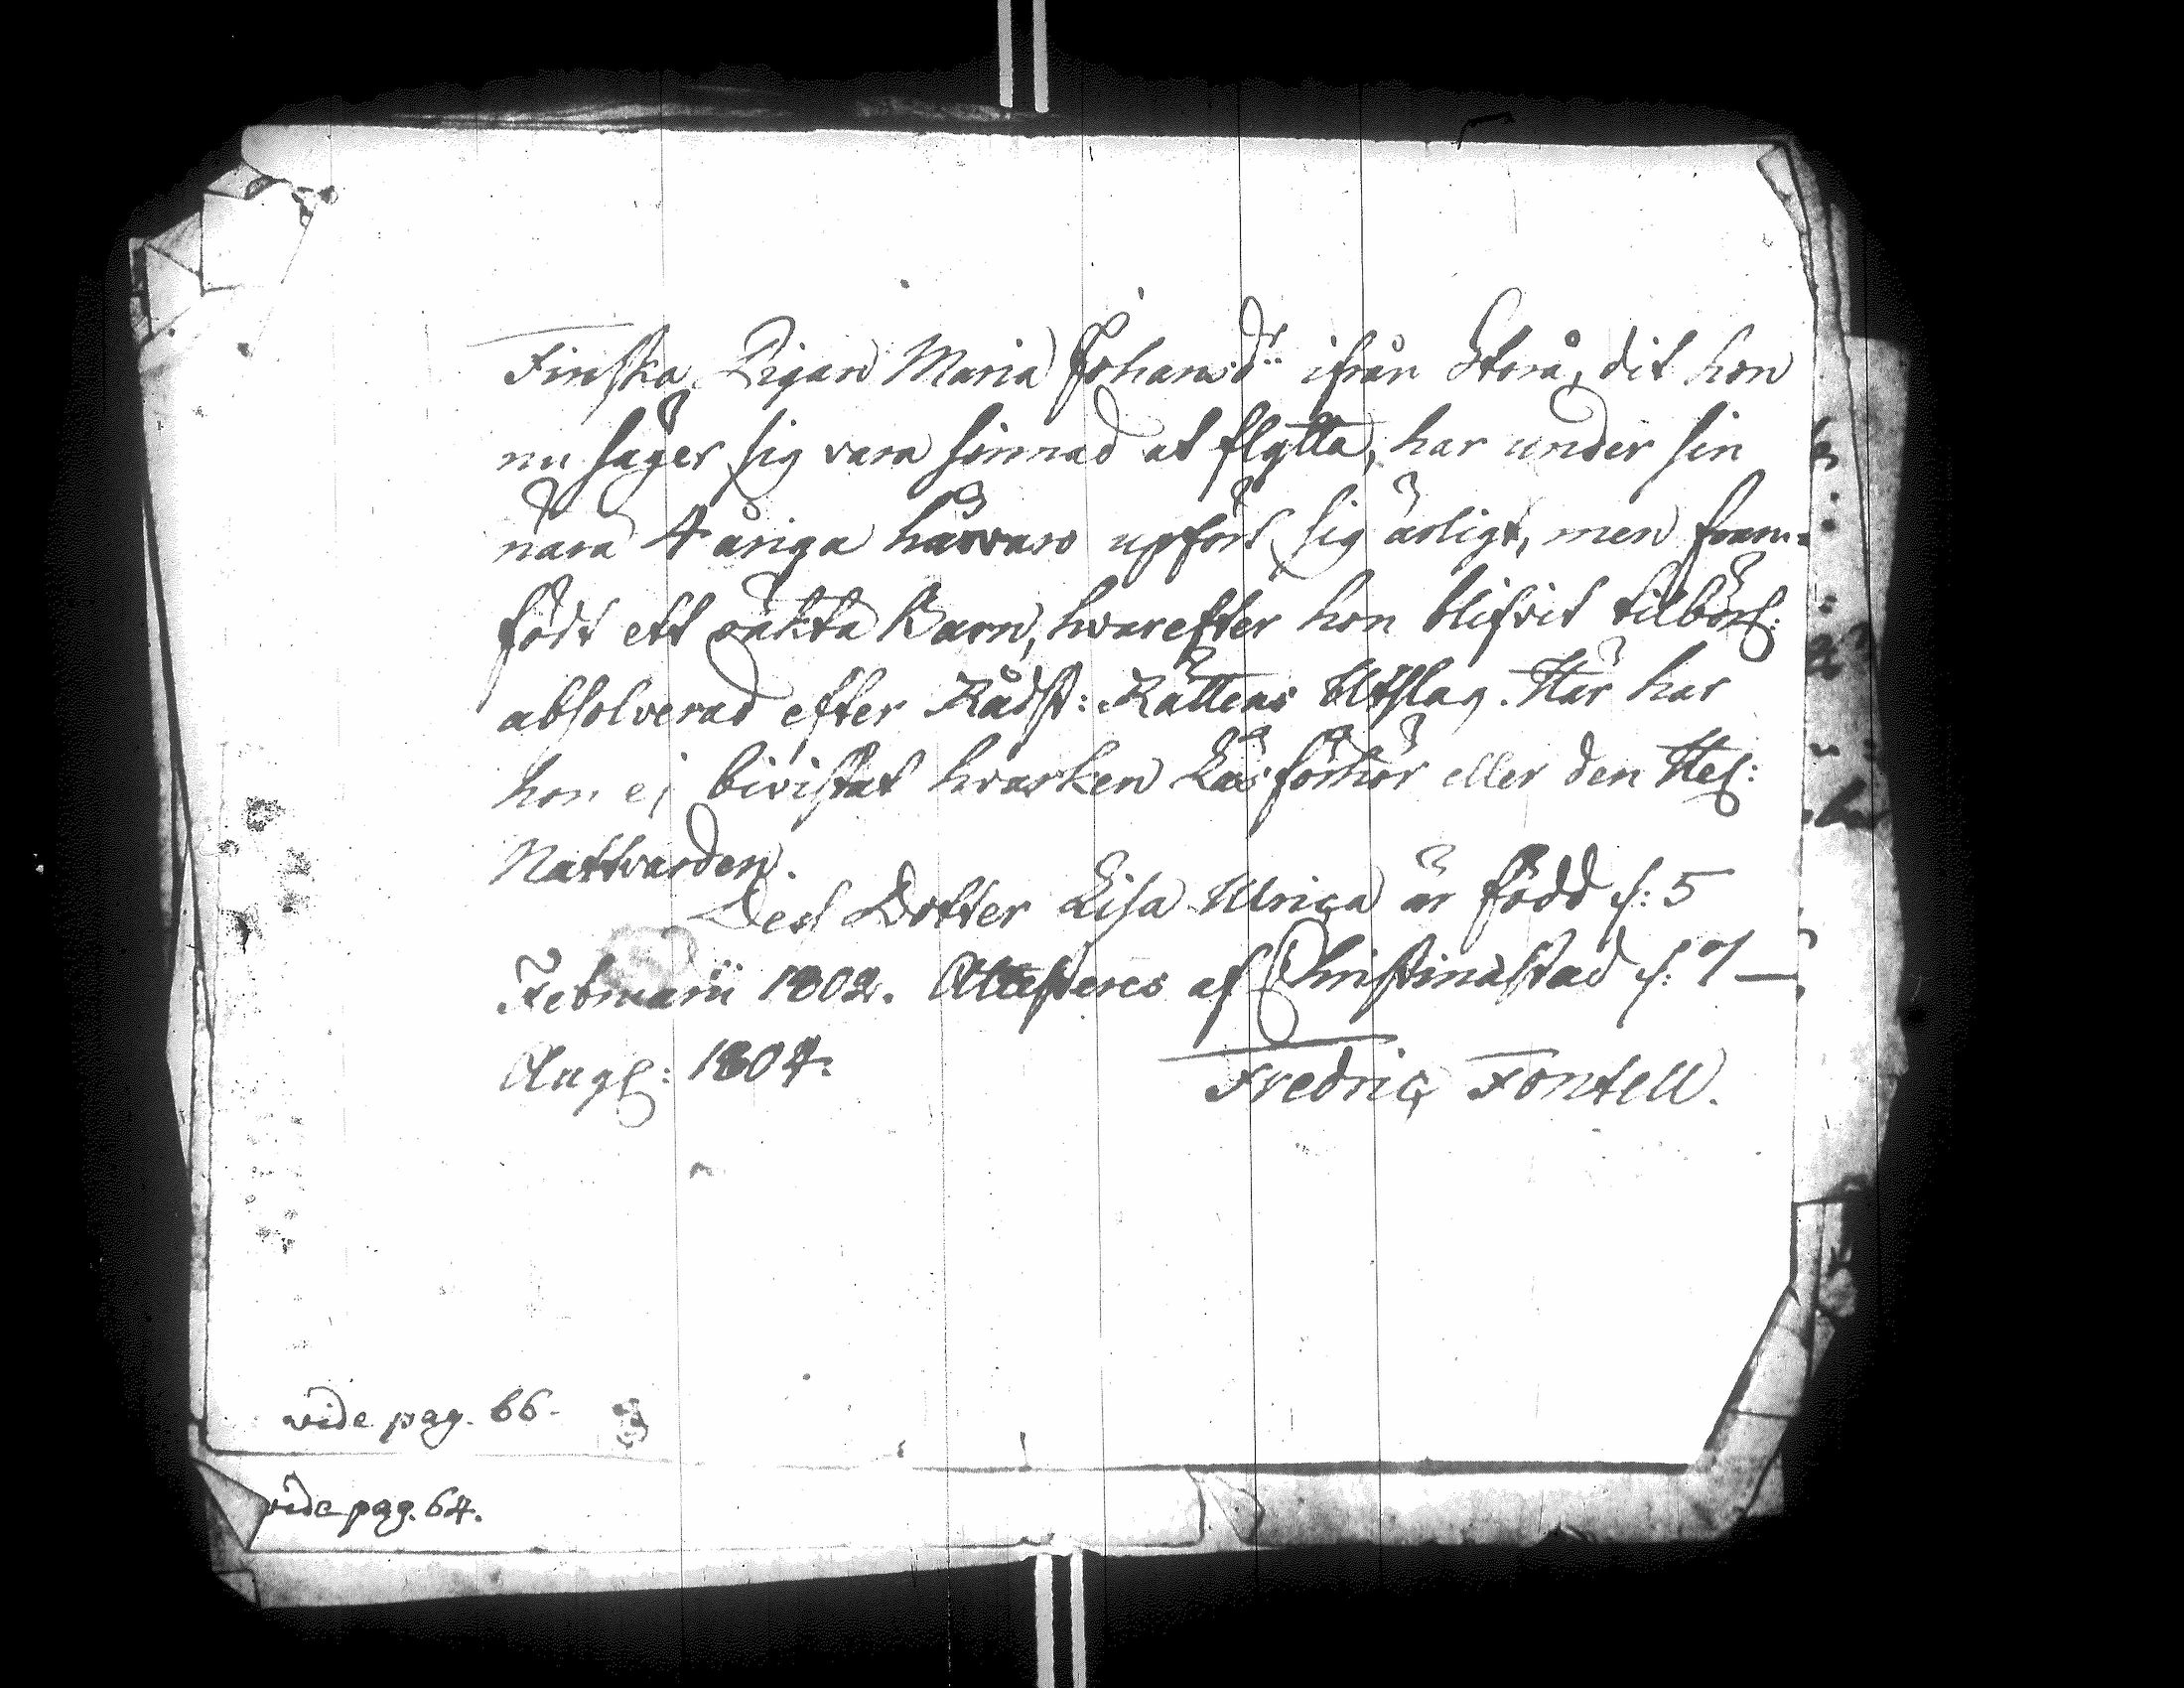 Finska Pigan Maria Johansdr. ifrån Storå, dit hon
nu säger sig vara sinnad at flytta, har under sin
nära 4 åriga härvaro upfört sig ärligt, men fram-
födt ett oäkta Barn, hvarefter hon blifvit tilbörl:
absolverad efter Rådst: Rättens Utslag. Här har
hon ej bivistat hvarken Läsförhör eller den Hel:
Nattvarden.
Dess Dotter Lisa Ulrica är född d: 5
Februarii 1802. Attesteras af Christinæstad d: 7
Augl: 1804.
Fredric Fontell.
vide pag. 66.
vide pag. 64.